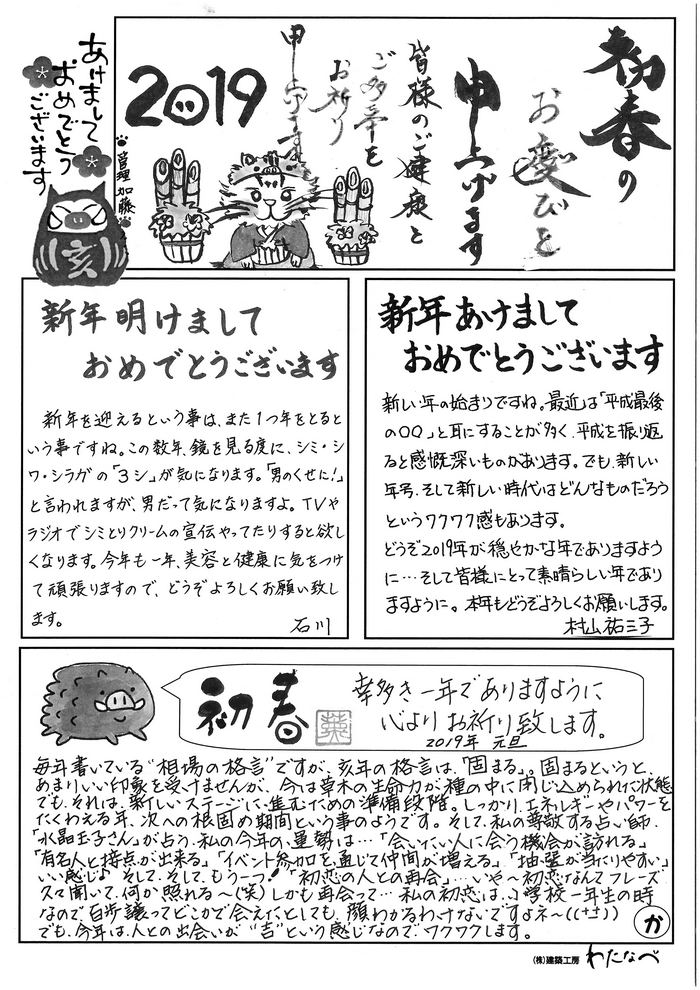 初春の
お慶びを
申し上げます
皆様のご健康と
ご多幸を
お祈り
申し上げます
2019
あけまして
おめでとう
ございます
管理 加藤
亥
新年明けまして
おめでとうございます
新年を迎えるという事は、また1つ年をとると
いう事ですね。この数年、鏡を見る度に、シミ・シ
ワ・シラガの「3シ」が気になります。「男のくせに!」
と言われますが、男だって気になりますよ。TVや
ラジオでシミとりクリームの宣伝やってたりすると欲し
くなります。今年も一年、美容と健康に気をつけ
て頑張りますので、どうぞよろしくお願い致し
ます。
石川
新年あけまして
おめでとうございます
新しい年の始まりですね。最近は「平成最後
の○○」と耳にすることが多く、平成を振り返
ると感慨深いものがあります。でも、新しい
年号、そして新しい時代はどんなものだろう
というワクワク感もあります。
どうぞ2019年が穏やかな年でありますよう
に…そして皆様にとって素晴らしい年であり
ますように。本年もどうぞよろしくお願いします。
村山祐三子
初春
幸多き一年でありますように
心よりお祈り致します。
2019年 元旦
毎年書いている"相場の格言"ですが、亥年の格言は、「固まる」。固まるというと、
あまりいい印象を受けませんが、今は草木の生命力が種の中に閉じ込められた状態
でも、それは、新しいステージに進むための準備段階。しっかり、エネルギーやパワーを
たくわえる年、次への根固め期間という事のようです。そして、私の尊敬する占い師、
「水晶玉子さん」が占う、私の今年の運勢は…「会いたい人に会う機会が訪れる」
「有名人と接点が出来る」「イベント参加を通じて仲間が増える」「抽選が当たりやすい」
いい感じ♪ そして、そして、もう一つ!「初恋の人との再会」…いや〜初恋なんてフレーズ
久々聞いて、何か照れる〜(笑)しかも再会って…私の初恋は、小学校一年生の時
なので百歩譲ってどこかで会えたとしても、顔わかるわけないですよネ〜((++))
でも、今年は、人との出会いが"吉"という感じなので、ワクワクします。
か
(株)建築工房 わたなべ